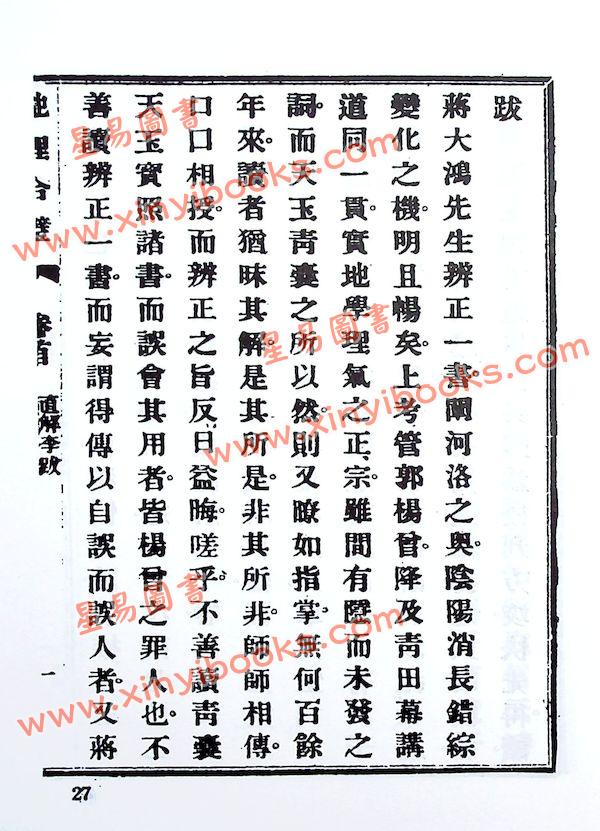 跋
蔣大鴻先生辨正一書。闡河洛之奧。陰陽消長錯綜
變化之機。明且暢矣。上考管郭楊曾。降及靑田幕講
道同一貫。實地學理氣之正宗。雖間有隱而未發之
詞。而天玉靑囊之所以然。則又瞭如指掌。無何百餘
年來。讀者猶昧其解。是其所是。非其所非。師師相傳。
口口相授。而辨正之旨反日益晦。嗟乎。不善讀靑囊
天玉寶照諸書。而誤會其用者。皆楊曾之罪人也。不
善讀辨正一書。而妄謂得傳以自誤而誤人者。又蔣
地理合璧 卷首 直解李跋 一
27
星易圖書
www.xinyibooks.com
星易圖書
www.xinyibooks.com
星易圖書
www.xinyibooks.com